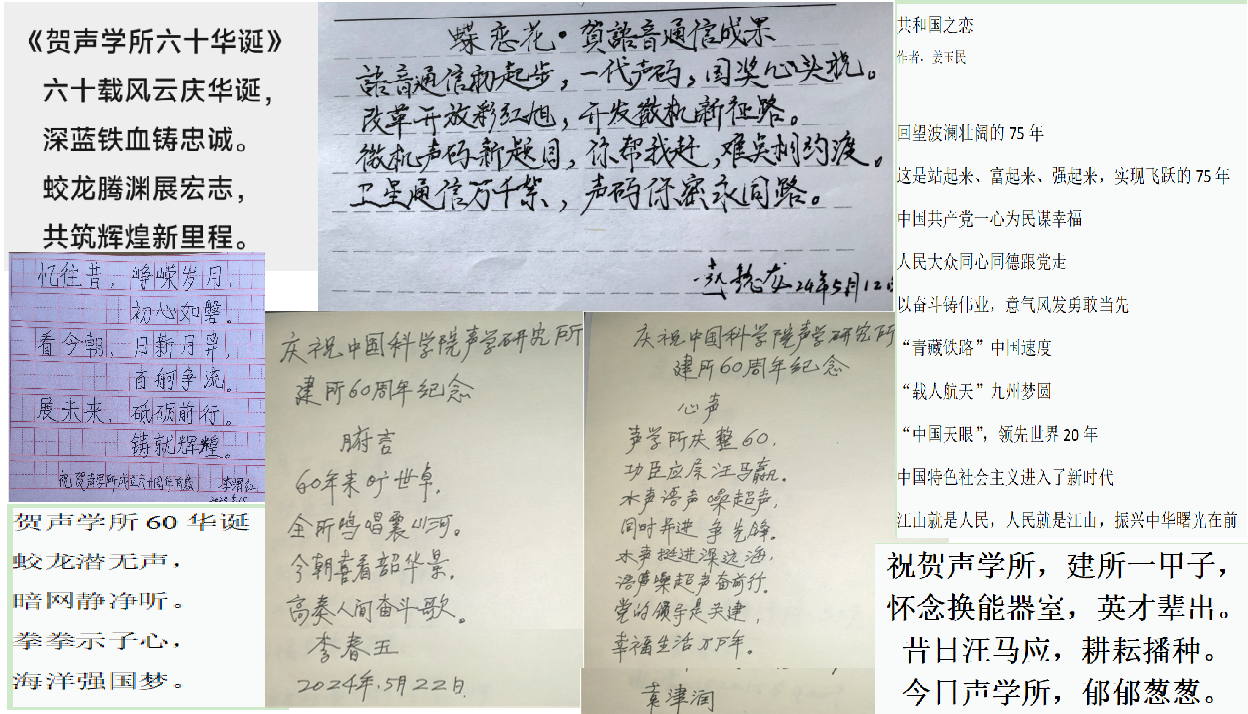 《贺声学所六十华诞》
六十载风云庆华诞，
深蓝铁血铸忠诚。
蛟龙腾渊展宏志，
共筑辉煌新里程。
蝶恋花·賀語音通信成果
語音通信初起步，一代声码，国奖心头悦。
改革开放彩红旭，开发微机新征路。
微机声码新题目，你帮我赶，难关相约渡。
卫星通信万千架，声码保密永同路。
24年5月12日
忆往昔，峥嵘岁月，
初心如磐。
看今朝，日新月异，
百舸争流。
展未来，砥砺前行。
铸就辉煌。
祝贺声学所成立六十周年
贺声学所60华诞
蛟龙潜无声，
暗网静净听。
拳拳示子心，
海洋强国梦。
庆祝中国科学院声学研究所
建所60周年纪念
腑言
60年来旷世卓，
全所鸣唱震山河。
今朝喜看韶华景，
高奏人间奋斗歌。
李春五
2024年5月22日
庆祝中国科学院声学研究所
建所60周年纪念
心声
声学所庆整60，
功臣应属汪马赢。
水声语声噪超声，
同时并进争先锋。
水声挺进深远海，
语声噪超声奋前行。
党的领导是关建，
幸福生活万万年。
袁津润
共和国之恋
作者：姜玉民
回望波澜壮阔的75年
这是站起来、富起来、强起来，实现飞跃的75年
中国共产党一心为民谋幸福
人民大众同心同德跟党走
以奋斗铸伟业，意气风发勇敢当先
“青藏铁路”中国速度
“载人航天”九州梦圆
“中国天眼”，领先世界20年
中国特色社会主义进入了新时代
江山就是人民，人民就是江山，振兴中华曙光在前
祝贺声学所，建所一甲子，
怀念换能器室，英才辈出。
昔日汪马应，耕耘播种。
今日声学所，郁郁葱葱。